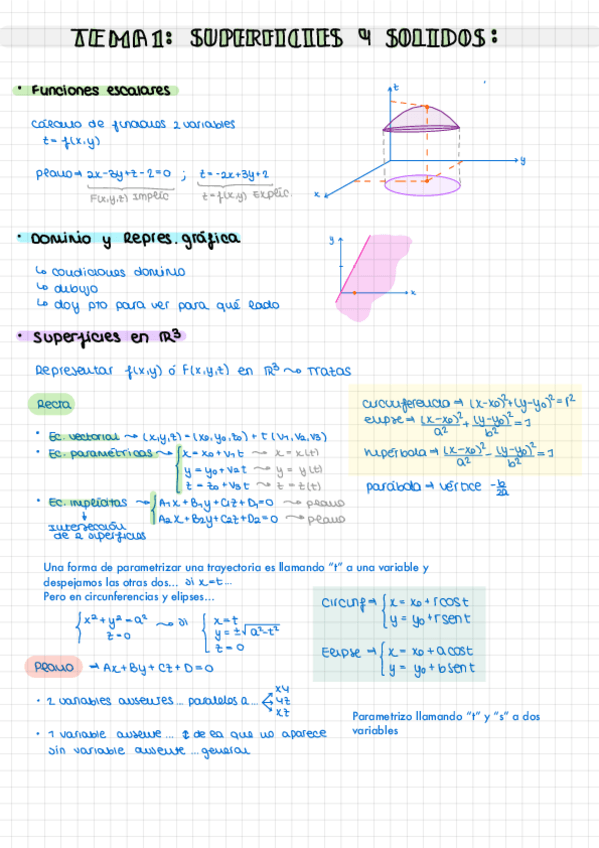 TEMA 1: SUPERFICIES Y SOLIDOS:
• Funciones escalares
Cálculo de funciones 2 variables
z = f(x,y)
plano → 2x-3y+z-2=0 ; z=-2x+3y+2
F(x,y,z) Implíc z=f(x,y) Explíc.
z
y
x
• Dominio y Repres. gráfica
↳ condiciones dominio
↳ dibujo
↳ doy pto para ver para qué lado
y
x
• Superficies en R³
Representar f(x,y) ó F(x,y,z) en R³ ⤳ Trazas
Recta
• Ec. vectorial ⤳ (x,y,z) = (x0,y0,z0) + t (v1,v2,v3)
• Ec. paramétricas ⤳ { x = x0+v1t ⤳ x = x(t)
y = y0+v2t ⤳ y = y(t)
z = z0+v3t ⤳ z = z(t)
• Ec. implícitas ⤳ { A1x + B1y + C1z + D1=0 ⤳ plano
A2x + B2y + C2z + D2=0 ⤳ plano
↓
Intersección
de 2 superficies
circunferencia → (x-x0)²+(y-y0)²=r²
elipse → (x-x0)²/a² + (y-y0)²/b² = 1
hipérbola → (x-x0)²/a² - (y-y0)²/b² = 1
parábola → vértice -b/2a
Una forma de parametrizar una trayectoria es llamando “t” a una variable y
despejamos las otras dos... si x=t...
Pero en circunferencias y elipses...
{ x² + y² = a² ⤳ si { x=t
z=0 y = ±√a²-t²
z=0
Circunf → { x = x0 + r cost
y = y0 + r sent
Elipse → { x = x0 + a cost
y = y0 + b sent
Plano → Ax + By + Cz + D = 0
• 2 variables ausentes... paralelos a... xy
yz
xz
• 1 variable ausente ... de la que no aparece
sin variable ausente ... general
Parametrizo llamando “t” y “s” a dos
variables